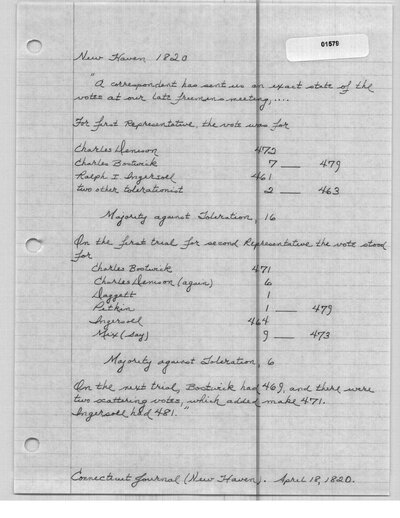 01578
New Haven 1820
"A correspondent has sent us an exact state of the
votes at our late freemens meeting, ....
For first Representative, the vote was for
Charles Denison 472
Charles Bostwick 7 — 479
Ralph I Ingersoll 461
two other tolerationist 2 — 463
Majority against Toleration, 16
On the first trial for second Representative the vote stood
for
Charles Bostwick 471
Charles Denison (again) 6
Daggett 1
Pitkin 1 — 479
Ingersoll 464
Mix (say) 9 — 473
Majority against Toleration, 6
On the next trial, Bostwick had 469, and there were
two scattering votes, which added make 471.
Ingersoll had 481."
Connecticut Journal (New Haven). April 18, 1820.